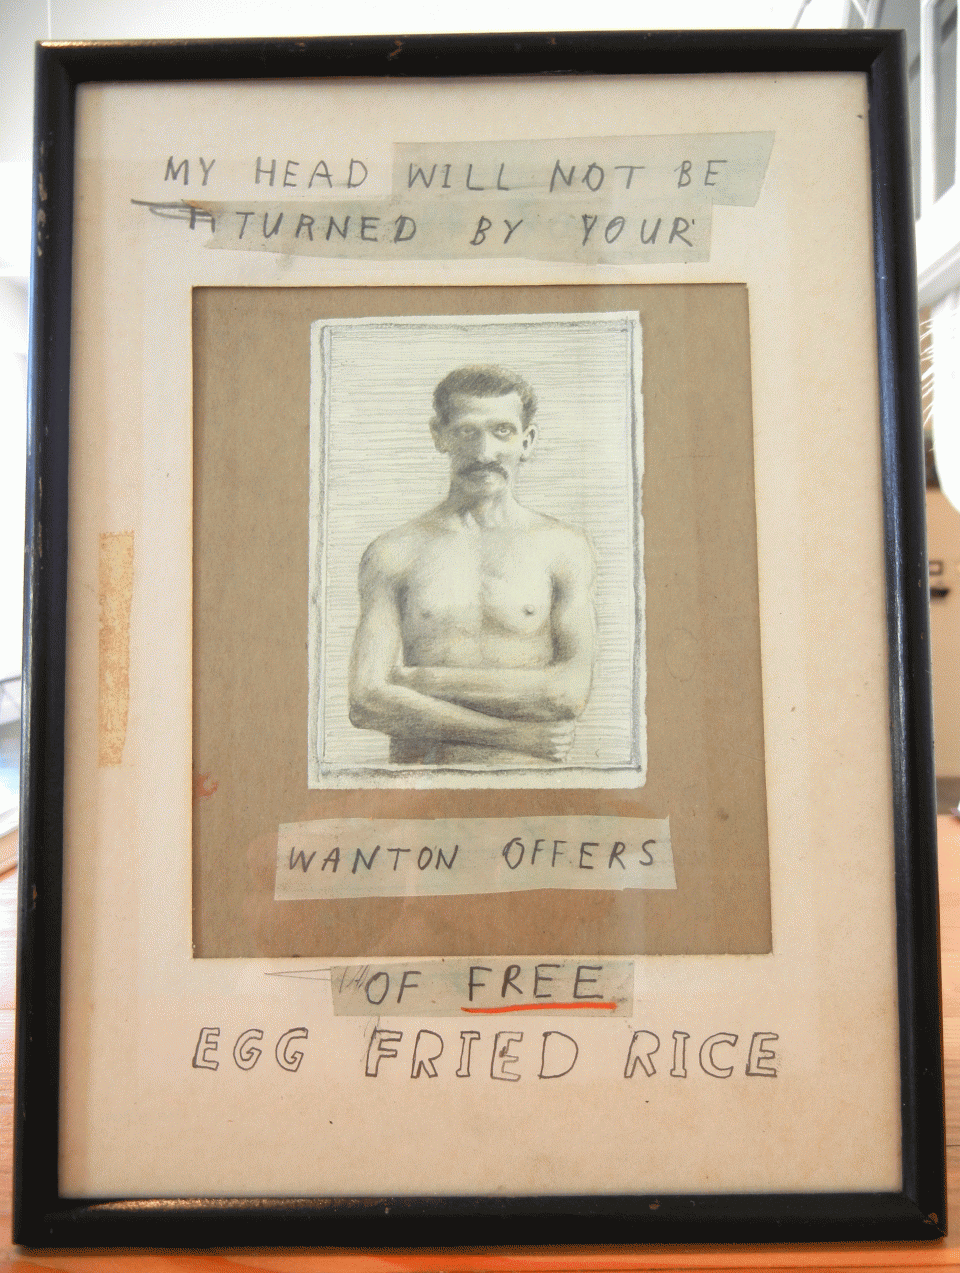 MY HEAD WILL NOT BE
TURNED BY YOUR
WANTON OFFERS
OF FREE
EGG FRIED RICE